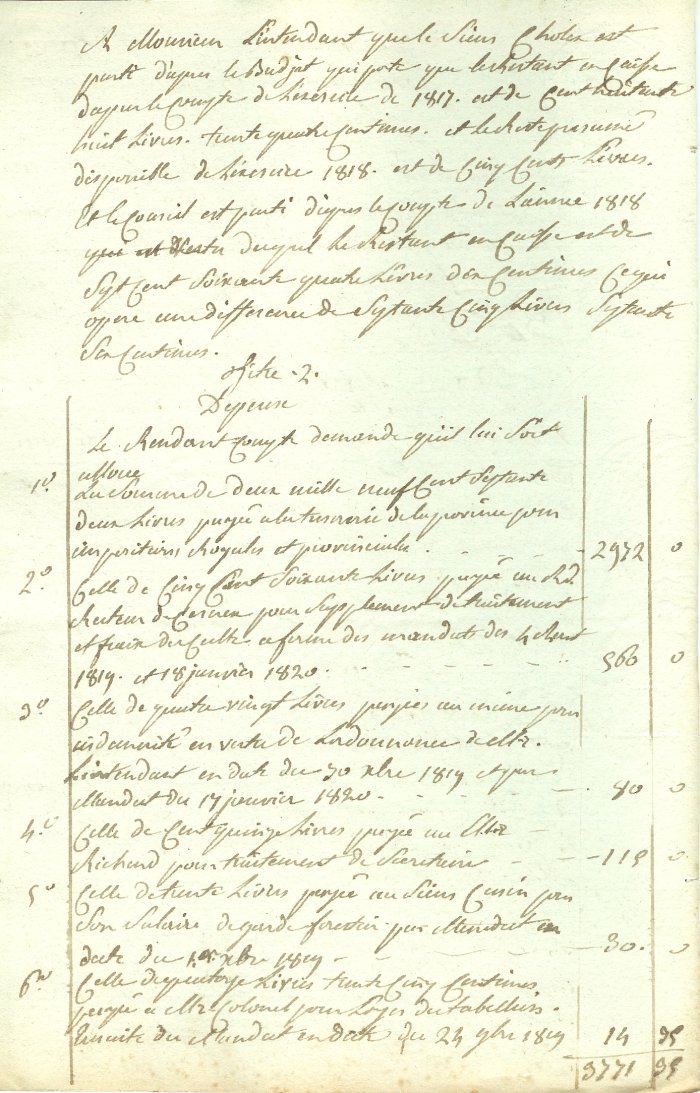 A Monsieur L'intendant que le Sieur Cholex est
parti d'apres le Budjet qui porte que le Restant en Caisse
d'apres le Compte de L'exercice de 1817. est de Cent huitante
huit Livres. trente quatre Centimes. et le Reste presumé
disponible de L'exercice 1818. est de Cinq Cents Livres.
Et le Conseil est parti d'apres le Compte de L'année 1818
duquel le Restant en Caisse est de
Sept Cent Soixante quatre Livres dix Centimes Ce qui
opere une difference de Septante Cinq Livres Septante
Six Centimes.
Titre 2.
Depense
Le Rendant Compte demande qu'il lui Soit
alloué
1º La Somme de deux mille neuf Cent Septante
deux Livres payée a la tresorerie de la province pour
impositions Royales et provinciales. - - - 2972 0
2º Celle de Cinq Cent Soixante Livres payée au Rd
Recteur de pour Supplement de traitement
et fraix du Culte a forme des mandats des 4
1819. et 18 janvier 1820. - - - 560 0
3º Celle de quatre vingt Livres payées au même pour
indamnité en vertu de L'ordonnance de Mr.
L'intendant en date du 30 xbre 1819 et par
Mandat du 17 janvier 1820. - - - 80 0
4º Celle de Cent quinze Livres payée au Mr
Richard pour traitement de Secretaire - - - 115 0
5º Celle de trente Livres payée au Sieur Cusin pour
Son Salaire de garde forestier par Mandat en
date du 1er xbre 1819 - - - 30. 0
6º Celle de quatorze Livres trente Cinq Centimes.
payée a Mr Colonel pour
Ensuite du Mandat en Date du 24 9bre 1819 14 35
3771 35